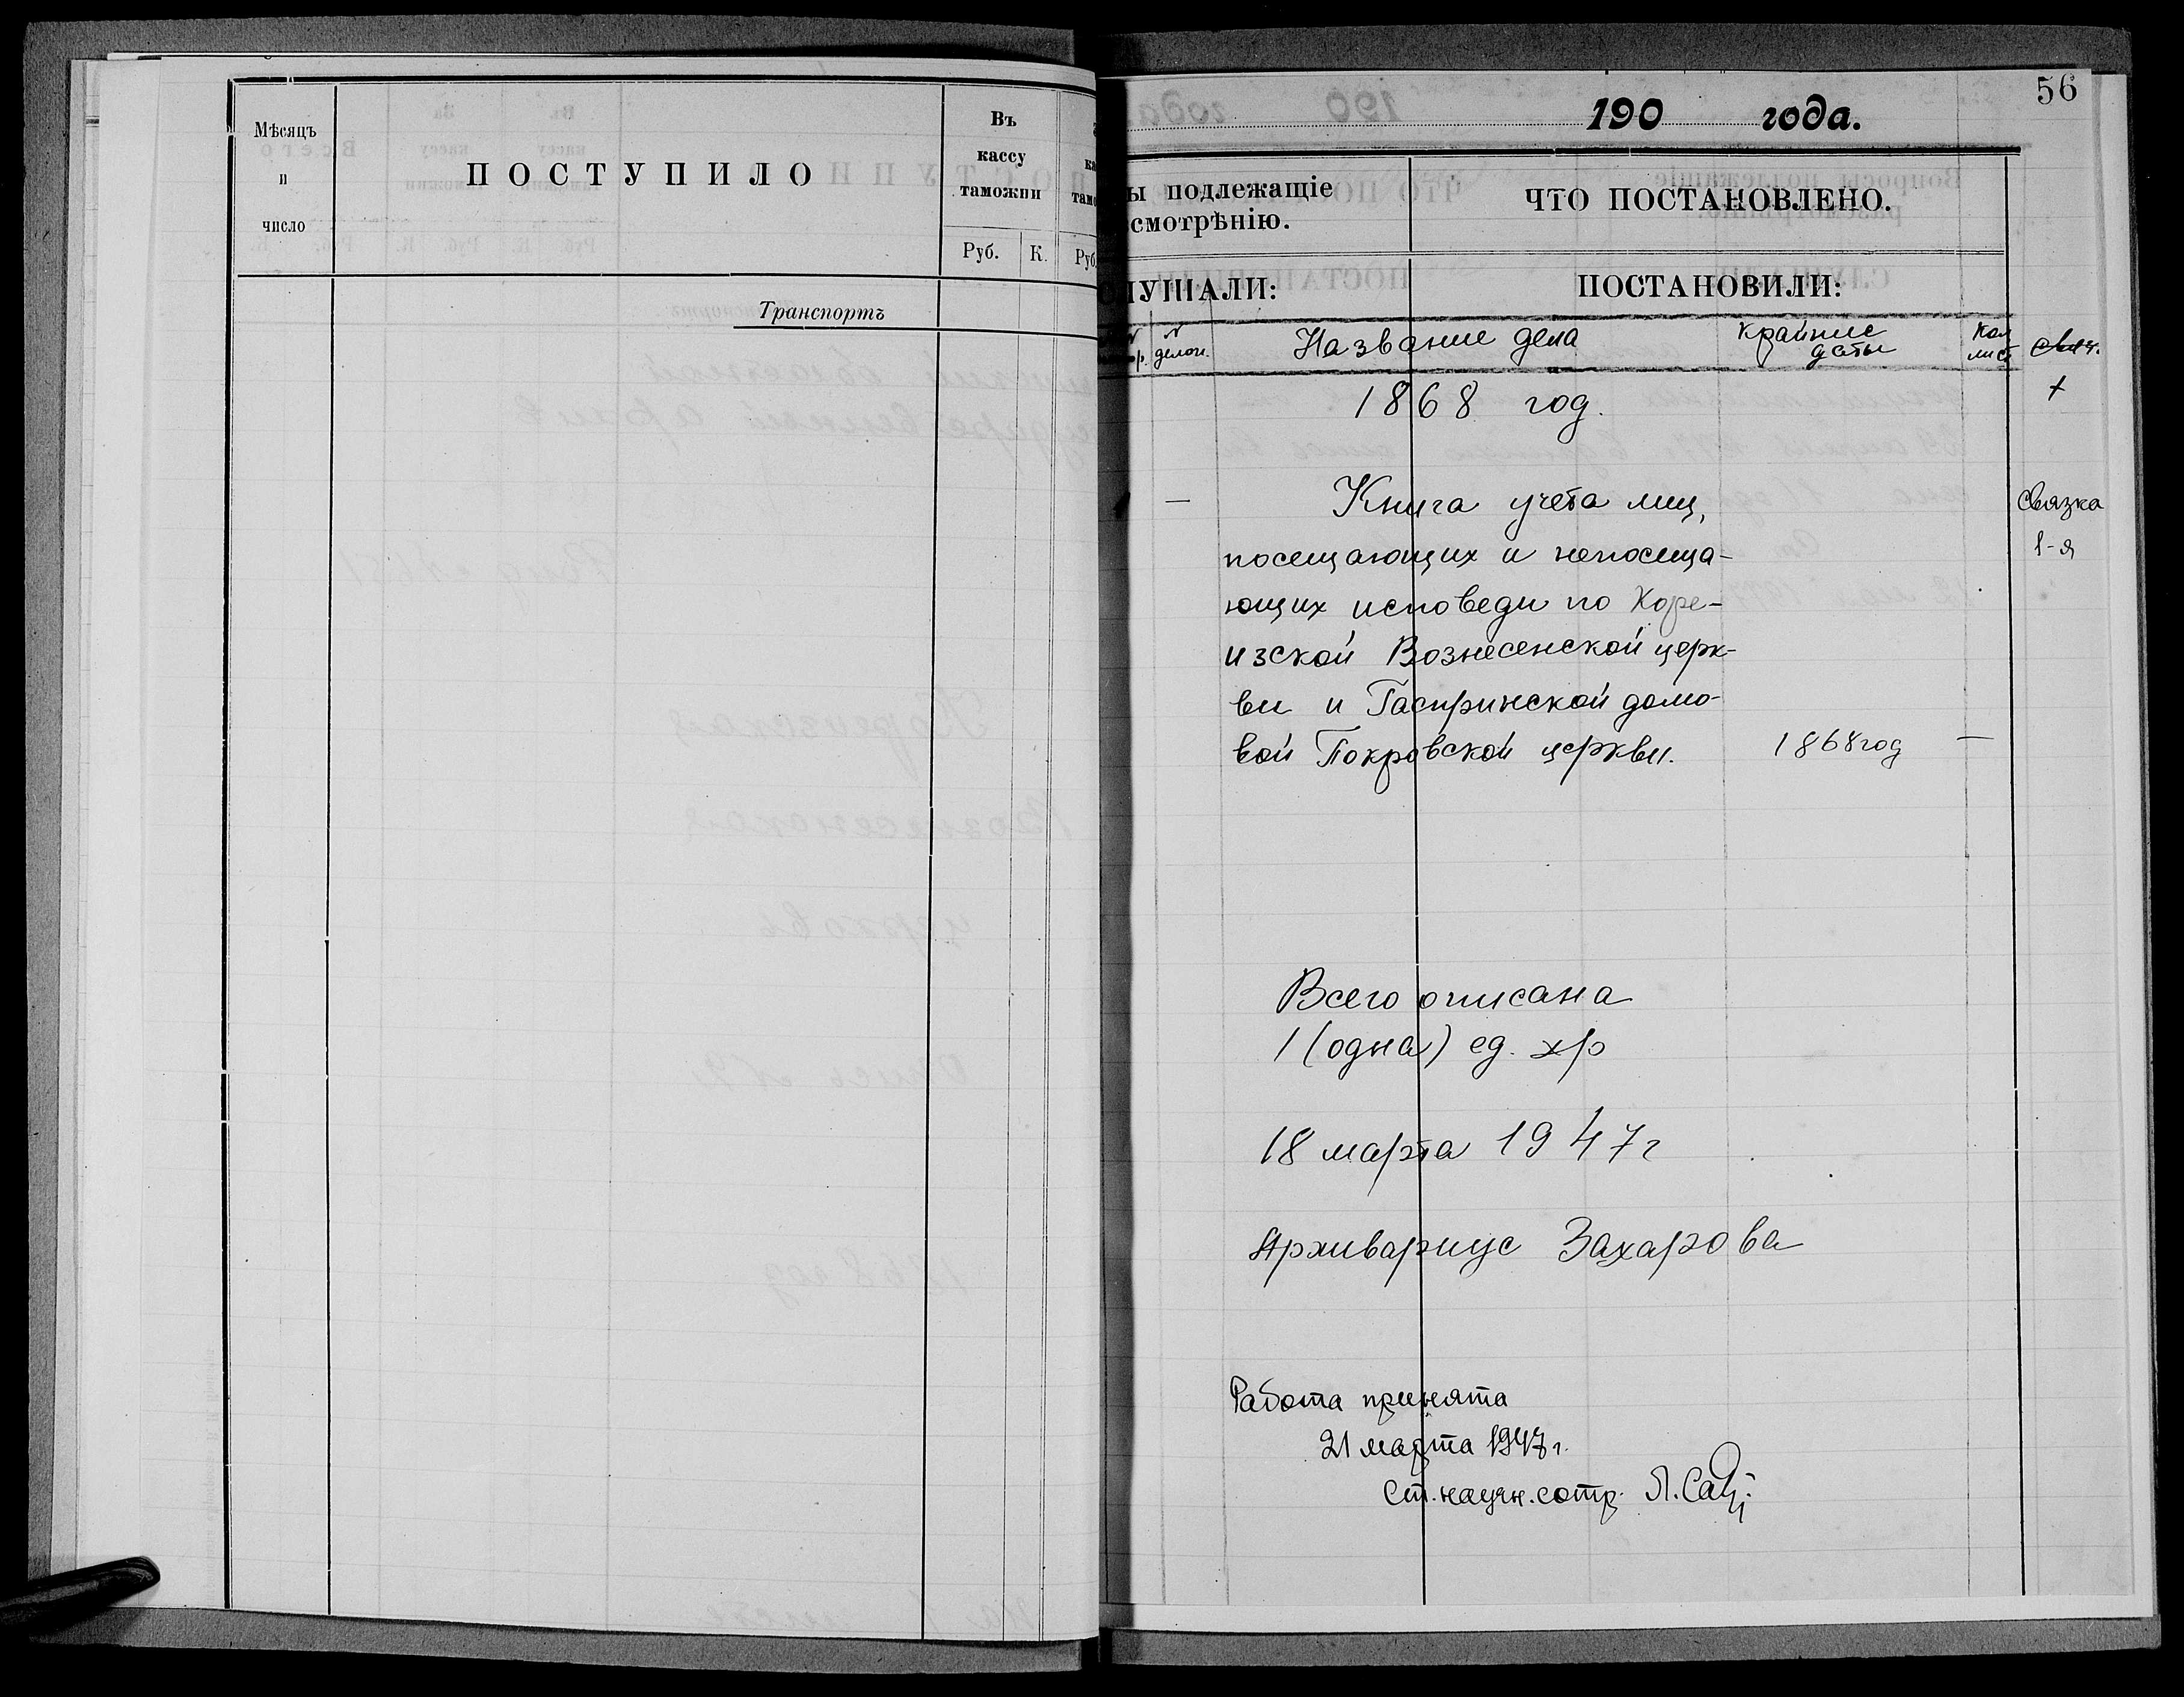 Мѣсяцъ
и
число
ПОСТУПИЛО
Въ
кассу
таможни
Руб.
К.
Руб
Транспортъ
56
190 года.
ы подлежащіе
смотрѣнію.
ЧТО ПОСТАНОВЛЕНО.
ЛУШАЛИ:
ПОСТАНОВИЛИ:
N
делоп.
Название дела
Крайние
даты
Кол
лист
связ.
1868 год.
+
— Книга учета лиц,
посещающих и непосеща-
ющих исповеди по Коре-
изской Вознесенской церк-
ви и Гаспринской домо-
вой Покровской церкви.
1868 год —
Связка
1-я
Всего описана
1 (одна) ед. хр
18 марта 1947 г
Архивариус Захарова
Работа принята
21 марта 1947 г.
Ст. научн. сотр.